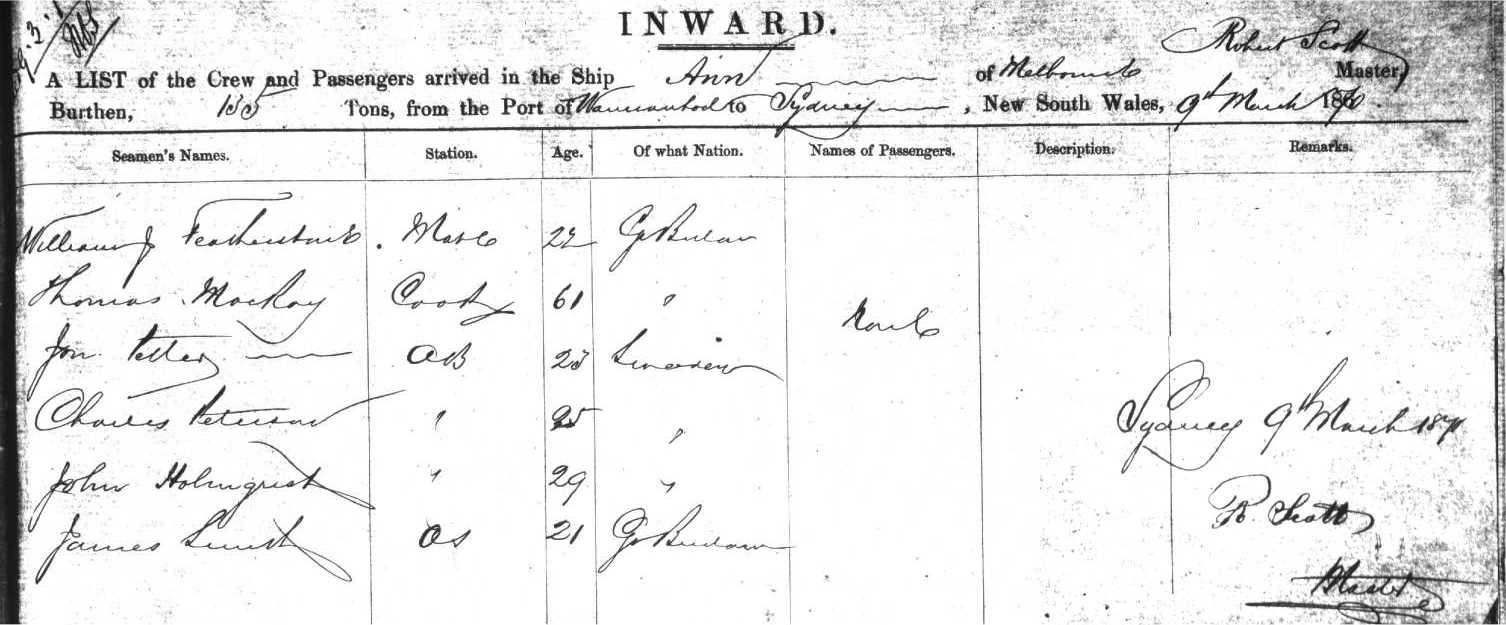 INWARD.
Robert Scott
A LIST of the Crew and Passengers arrived in the Ship Ann of Melbourne Master,
Burthen, 135 Tons, from the Port of to Sydney, New South Wales, 9th March 1870.
Seamen's Names. Station. Age. Of what Nation. Names of Passengers. Description. Remarks.
William J Featherstone Mate 22 Gt Britain
Thomas MacKay Cook 61 "
None
Jon Petter AB 23 Sweden
Charles Peterson " 25 "
Sydney 9th March 1870
John Holmquist " 29 "
R Scott
James OS 21 Gt Britain
Master